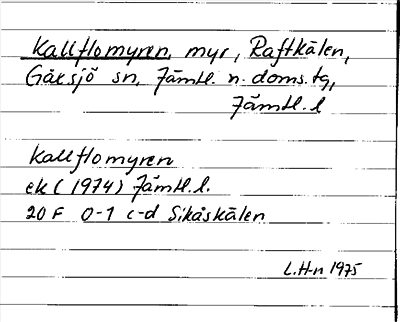 Kallflomyren, myr, Raftkälen,
Gåxsjö sn, Jämtl. n. doms. tg,
Jämtl. l
Kallflomyren
ek (1974) Jämtl. l.
20 F 0-1 c-d Sikåskälen
L.H-n 1975